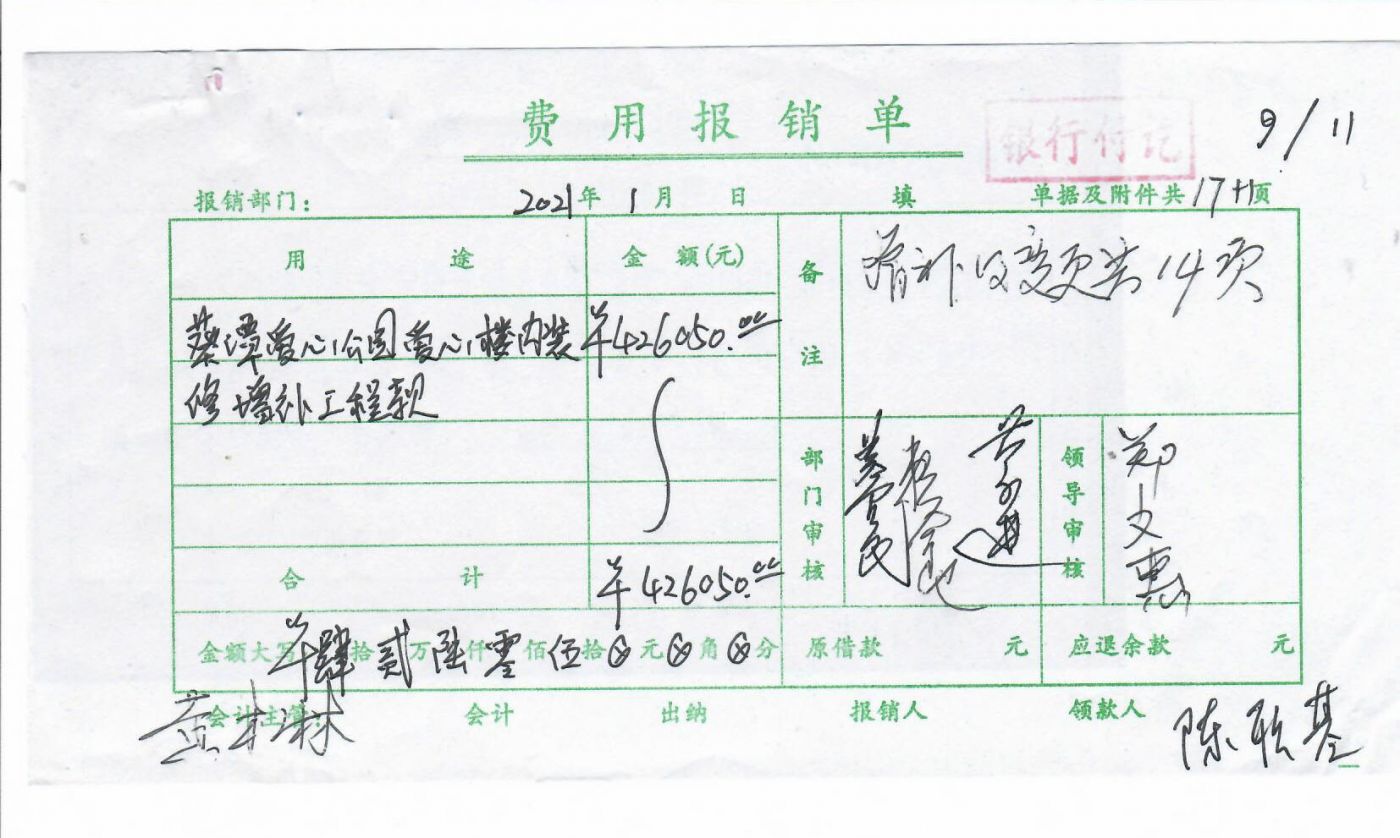 费用报销单
银行付讫
9/11
报销部门： 2021年 1月 日 填 单据及附件共17+1页
用途 金额(元) 备注 增补及变更共14项
蔡潭爱心公园爱心楼内装 ¥426050.00
修增补工程款
部门审核 领导审核 郑文惠
合计 ¥426050.00
金额大写 ¥肆拾贰万陆仟零佰伍拾⊗元⊗角⊗分 原借款 元 应退余款 元
会计主管： 会计 出纳 报销人 领款人 陈耿基